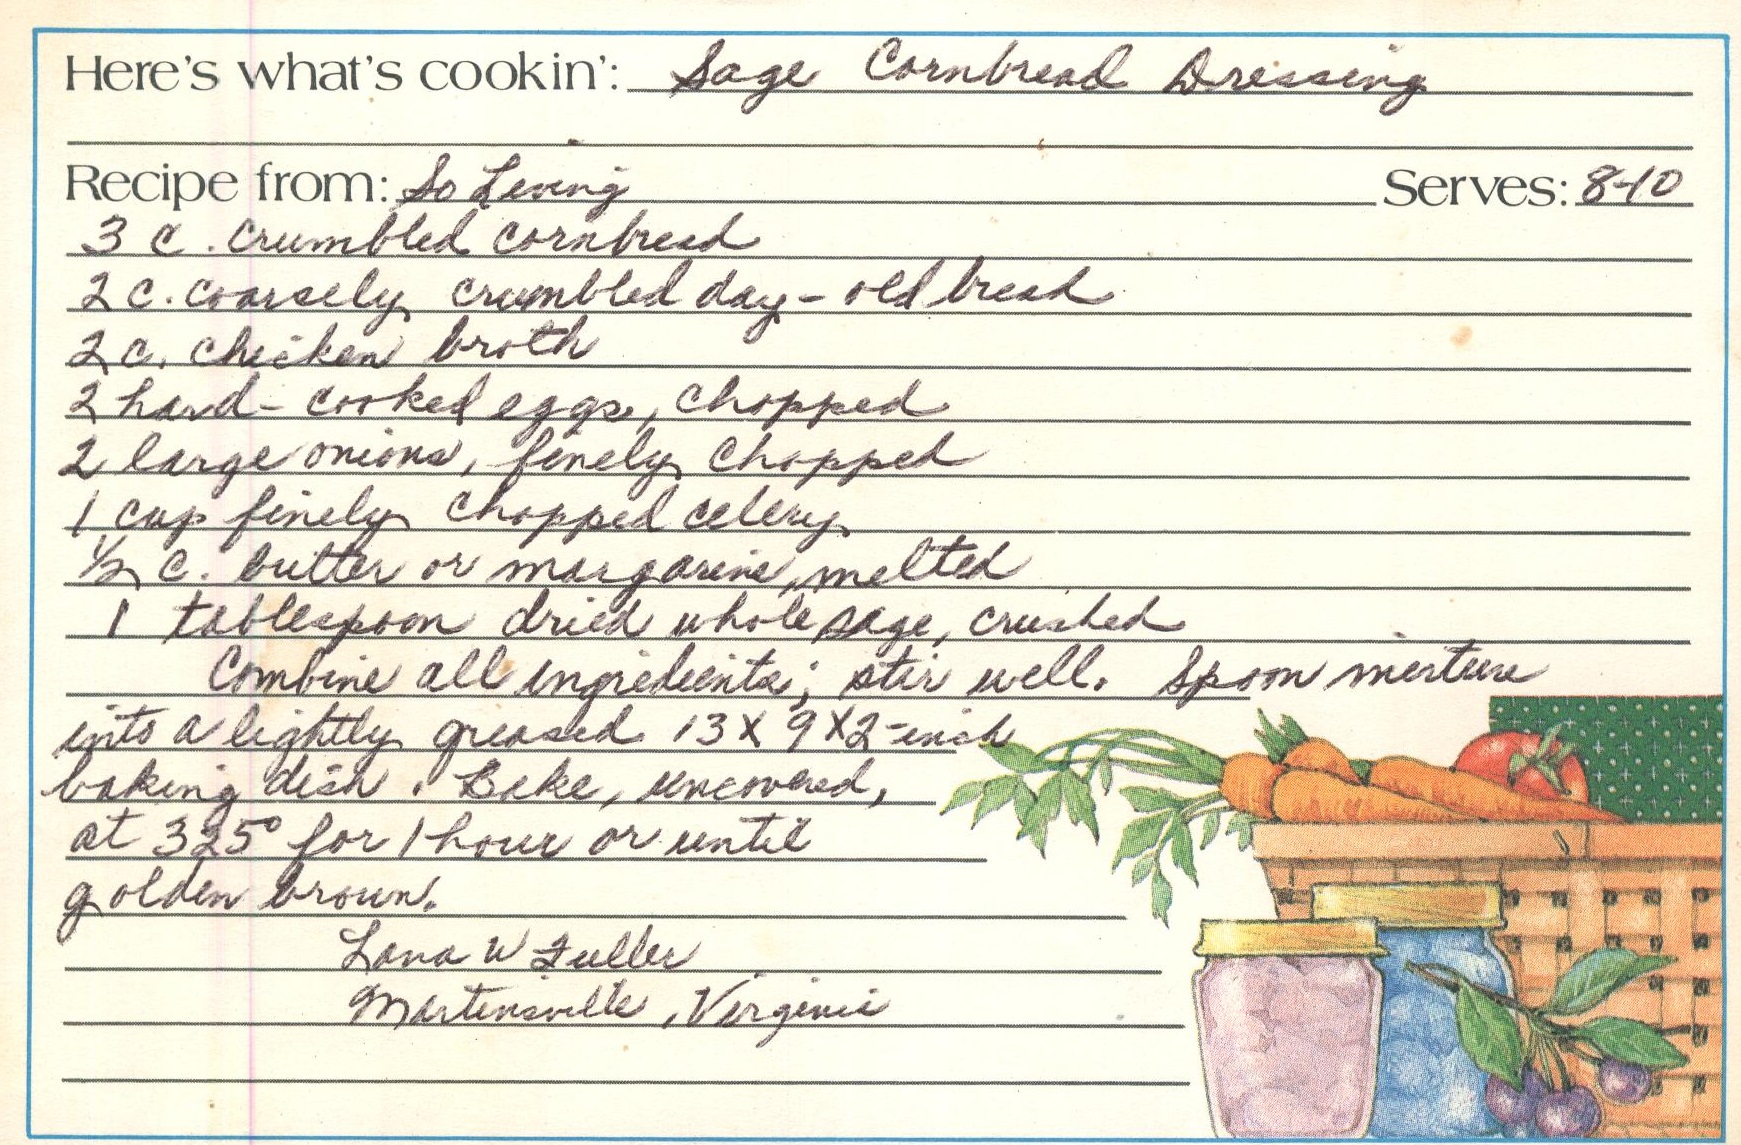 Here's what's cookin': Sage Cornbread Dressing
Recipe from: So Living Serves: 8-10
3 c. crumbled cornbread
2 c. coarsely crumbled day-old bread
2 c. chicken broth
2 hard-cooked eggs, chopped
2 large onions, finely chopped
1 cup finely chopped celery
1/2 c. butter or margarine, melted
1 tablespoon dried whole sage, crushed
Combine all ingredients; stir well. Spoon mixture
into a lightly greased 13x9x2-inch
baking dish. Bake, uncovered,
at 325° for 1 hour or until
golden brown.
Lana W Fuller
Martinsville, Virginia